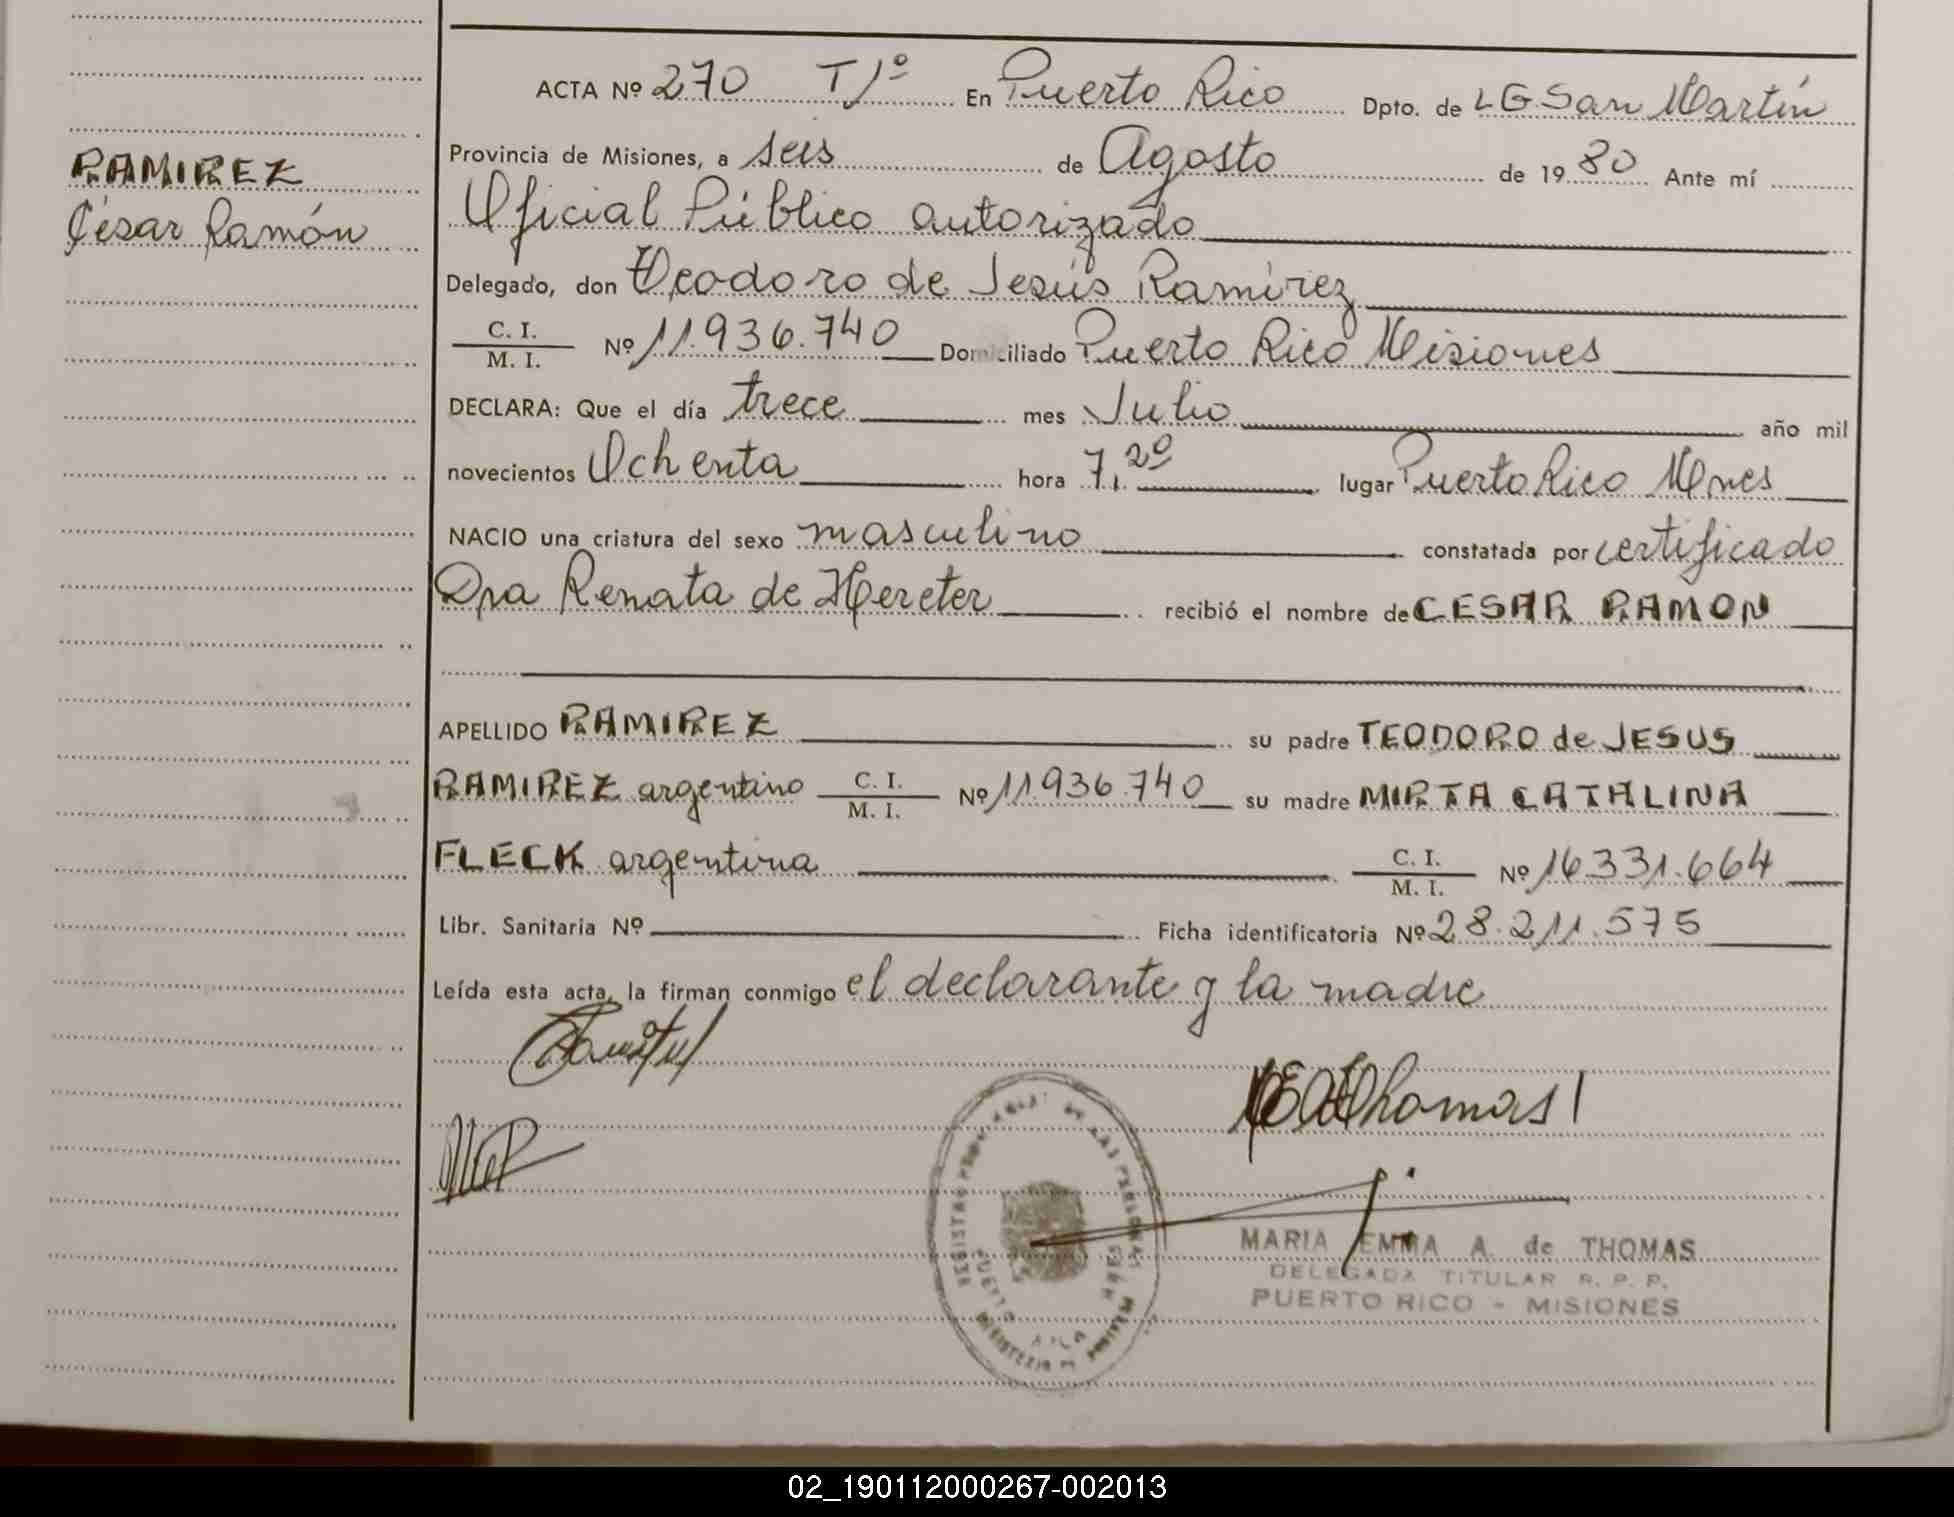 ACTA Nº 270 T/1º En Puerto Rico Dpto. de LG San Martín
RAMIREZ
César Ramón
Provincia de Misiones, a seis de Agosto de 1980 Ante mí
Oficial Público autorizado
Delegado, don Teodoro de Jesús Ramírez
C. I.
M. I. Nº 11.936.740 Domiciliado Puerto Rico Misiones
DECLARA: Que el día trece mes Julio año mil
novecientos Ochenta hora 7,20 lugar Puerto Rico Mnes
NACIO una criatura del sexo masculino constatada por certificado
Dra Renata de Hereter recibió el nombre de CESAR RAMON
APELLIDO RAMIREZ su padre TEODORO de JESUS
RAMIREZ argentino C. I. M. I. Nº 11936.740 su madre MIRTA CATALINA
FLECK argentina C. I. M. I. Nº 16331.664
Libr. Sanitaria Nº Ficha identificatoria Nº 28.211.575
Leída esta acta, la firman conmigo el declarante y la madre
Thomas
MARIA EMMA A. de THOMAS
DELEGADA TITULAR R. P. P.
PUERTO RICO - MISIONES
02_190112000267-002013